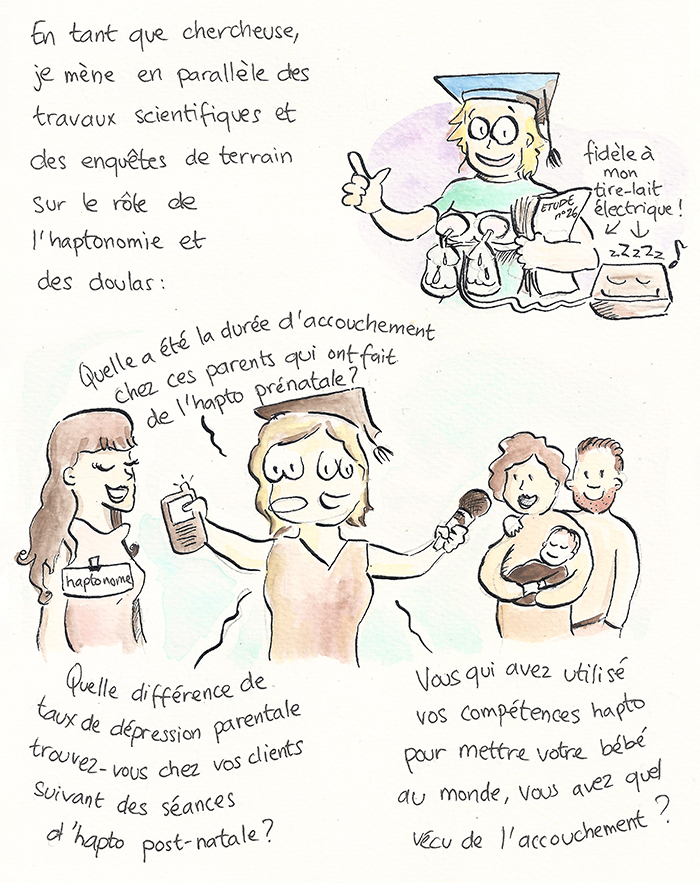 En tant que chercheuse,
je mène en parallèle des
travaux scientifiques et
des enquêtes de terrain
sur le rôle de
l'haptonomie et
des doulas :
fidèle à
mon
tire-lait
électrique !
ETUDE
n°26
zZzZz
Quelle a été la durée d'accouchement
chez ces parents qui ont fait
de l'hapto prénatale ?
haptonome
Quelle différence de
taux de dépression parentale
trouvez-vous chez vos clients
suivant des séances
d'hapto post-natale ?
Vous qui avez utilisé
vos compétences hapto
pour mettre votre bébé
au monde, vous avez quel
vécu de l'accouchement ?